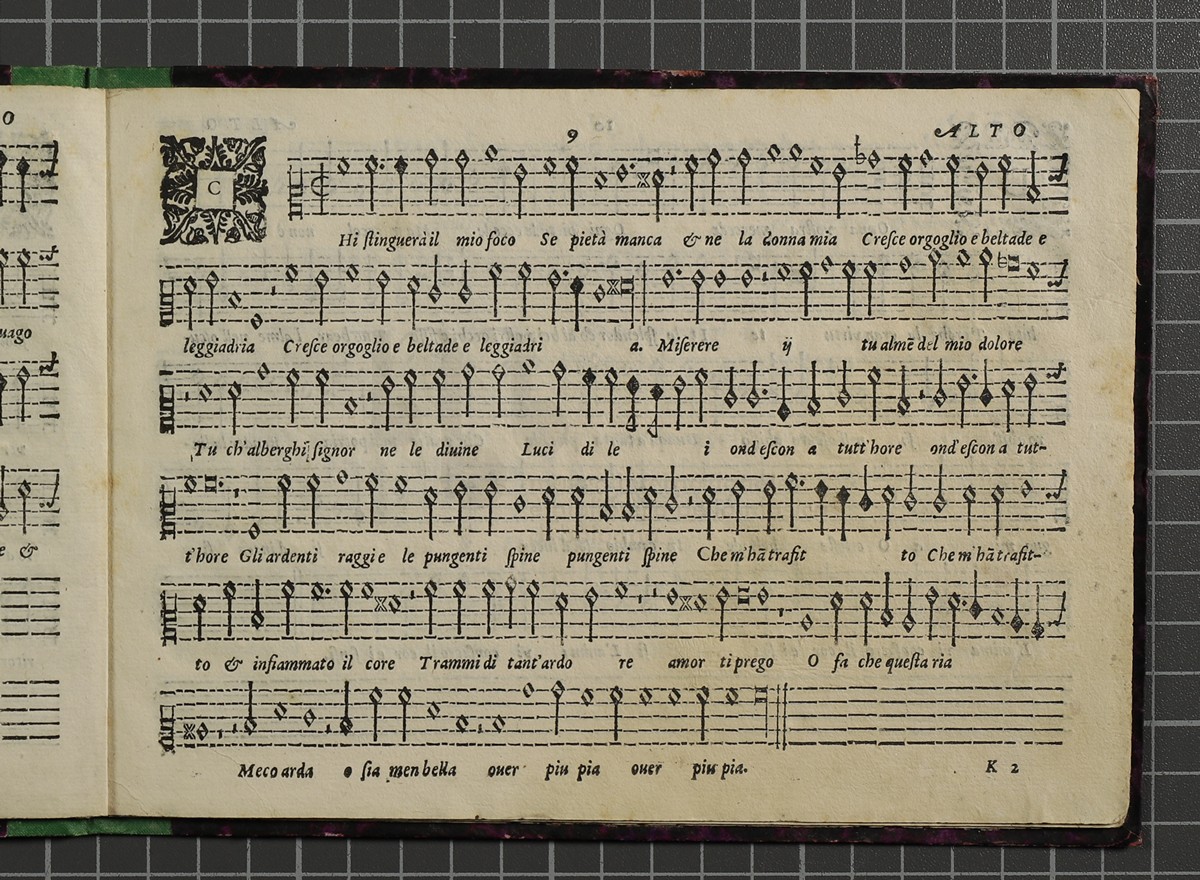 O
uago
e &
9
ALTO.
C
Hi ſtinguerà il mio foco Se pietà manca & ne la donna mia Creſce orgoglio e beltade e
leggiadria Creſce orgoglio e beltade e leggiadri a. Miſerere ij tu almẽ del mio dolore
Tu ch'alberghi ſignor ne le diuine Luci di le i ond'eſcon a tutt'hore ond'eſcon a tut-
t'hore Gli ardenti raggi e le pungenti ſpine pungenti ſpine Che m'hã trafit to Che m'hã trafit-
to & infiammato il core Trammi di tant'ardo re amor ti prego O fa che queſta ria
Meco arda o ſia men bella ouer piu pia ouer piu pia.
K 2